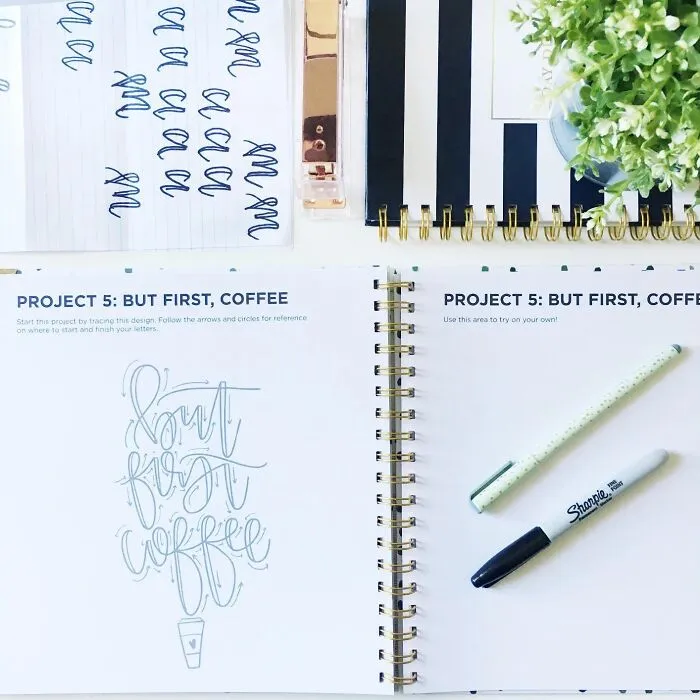 PROJECT 5: BUT FIRST, COFFEE
Start this project by tracing this design. Follow the arrows and circles for reference
on where to start and finish your letters.
but
first
coffee
PROJECT 5: BUT FIRST, COFFE
Use this area to try on your own!
Sharpie
FINE
POINT